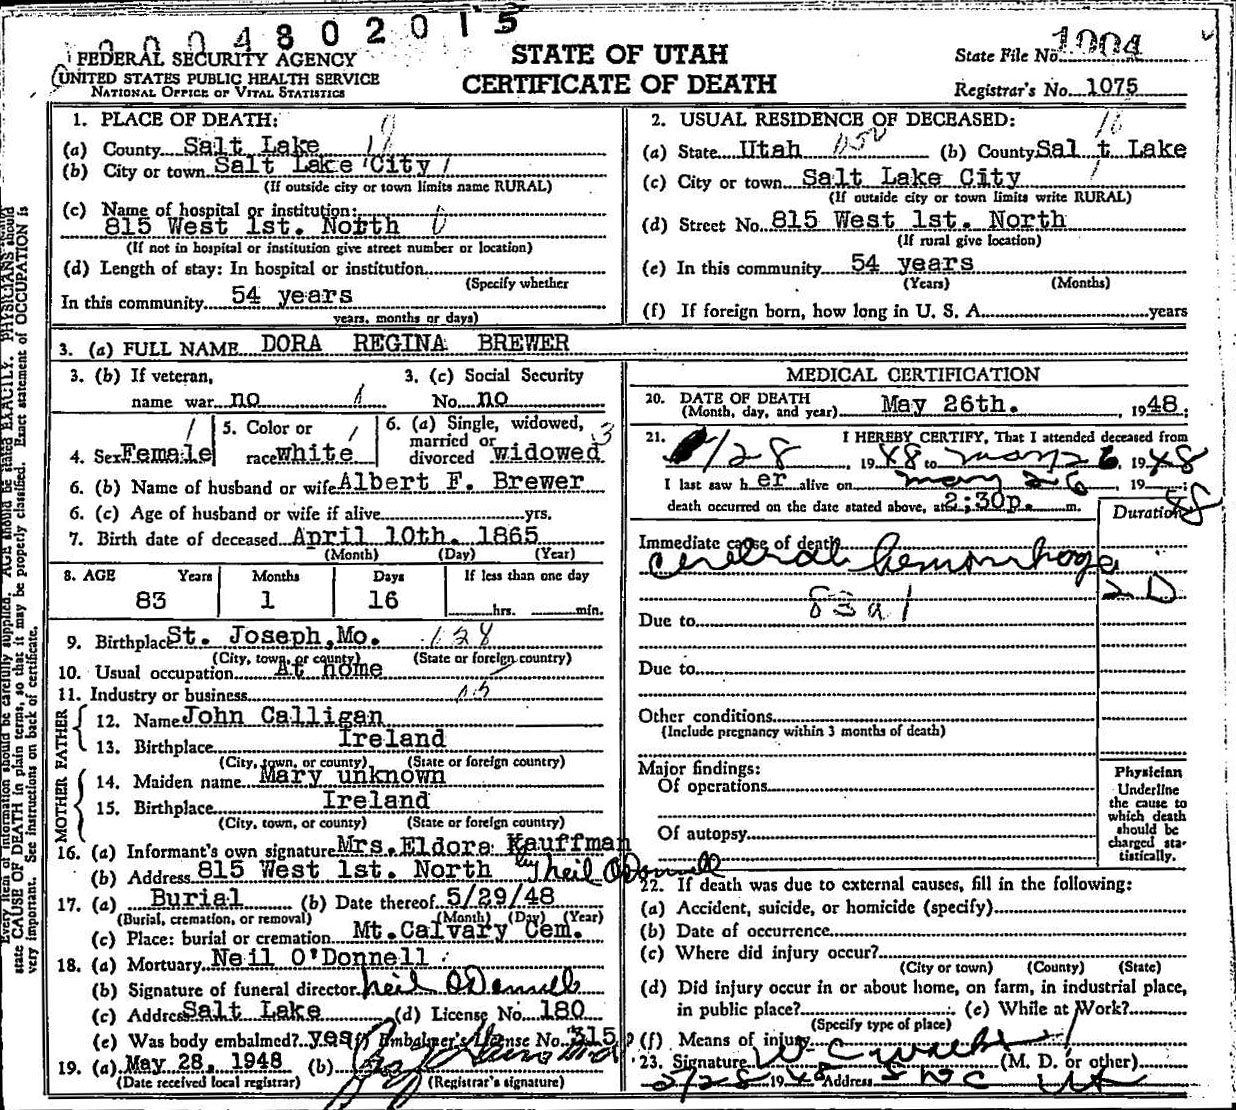 0004802015
FEDERAL SECURITY AGENCY
UNITED STATES PUBLIC HEALTH SERVICE
NATIONAL OFFICE OF VITAL STATISTICS
STATE OF UTAH
CERTIFICATE OF DEATH
State File No. 1004
Registrar's No. 1075
1. PLACE OF DEATH:
(a) County Salt Lake
(b) City or town Salt Lake City
(If outside city or town limits name RURAL)
(c) Name of hospital or institution:
815 West 1st. North
(If not in hospital or institution give street number or location)
(d) Length of stay: In hospital or institution
(Specify whether
In this community 54 years
years, months or days)
2. USUAL RESIDENCE OF DECEASED: 18
(a) State Utah (b) County Salt Lake
(c) City or town Salt Lake City
(If outside city or town limits write RURAL)
(d) Street No. 815 West 1st. North
(If rural give location)
(e) In this community 54 years
(Years) (Months)
(f) If foreign born, how long in U. S. A. years
3. (a) FULL NAME DORA REGINA BREWER
3. (b) If veteran,
name war no
3. (c) Social Security
No. no
4. Sex Female
5. Color or
race white
6. (a) Single, widowed,
married or
divorced widowed 3
6. (b) Name of husband or wife Albert F. Brewer
6. (c) Age of husband or wife if alive yrs.
7. Birth date of deceased April 10th. 1865
(Month) (Day) (Year)
8. AGE Years Months Days If less than one day
83 1 16 hrs. min.
9. Birthplace St. Joseph, Mo. 128
(City, town, or county) (State or foreign country)
10. Usual occupation At home
11. Industry or business
FATHER
12. Name John Calligan
13. Birthplace Ireland
(City, town, or county) (State or foreign country)
MOTHER
14. Maiden name Mary unknown
15. Birthplace Ireland
(City, town, or county) (State or foreign country)
16. (a) Informant's own signature Mrs. Eldora Kauffman
by Neil O'Donnell
(b) Address 815 West 1st. North
17. (a) Burial (b) Date thereof 5/29/48
(Burial, cremation, or removal) (Month) (Day) (Year)
(c) Place: burial or cremation Mt. Calvary Cem.
18. (a) Mortuary Neil O'Donnell
(b) Signature of funeral director Neil O'Donnell
(c) Address Salt Lake (d) License No. 180
(e) Was body embalmed? yes (f) Embalmer's License No. 315
19. (a) May 28, 1948 (b)
(Date received local registrar) (Registrar's signature)
MEDICAL CERTIFICATION
20. DATE OF DEATH
(Month, day, and year) May 26th. , 1948;
21. I HEREBY CERTIFY, That I attended deceased from
/28 , 1948 to May 26, 1948
I last saw her alive on May 26 , 1948;
death occurred on the date stated above, at 2;30p. m.
Duration
Immediate cause of death
cerebral hemorrhage
2 D
83a1
Due to
Due to
Other conditions
(Include pregnancy within 3 months of death)
Major findings:
Of operations
Of autopsy
Physician
Underline
the cause to
which death
should be
charged sta-
tistically.
22. If death was due to external causes, fill in the following:
(a) Accident, suicide, or homicide (specify)
(b) Date of occurrence
(c) Where did injury occur?
(City or town) (County) (State)
(d) Did injury occur in or about home, on farm, in industrial place,
in public place? (e) While at Work?
(Specify type of place)
(f) Means of injury
23. Signature W C (M. D. or other)
5/28 1948 Address SLC Ut
Every item of information should be carefully supplied. AGE should be stated EXACTLY. PHYSICIANS should
state CAUSE OF DEATH in plain terms, so that it may be properly classified. Exact statement of OCCUPATION is
very important. See instructions on back of certificate.